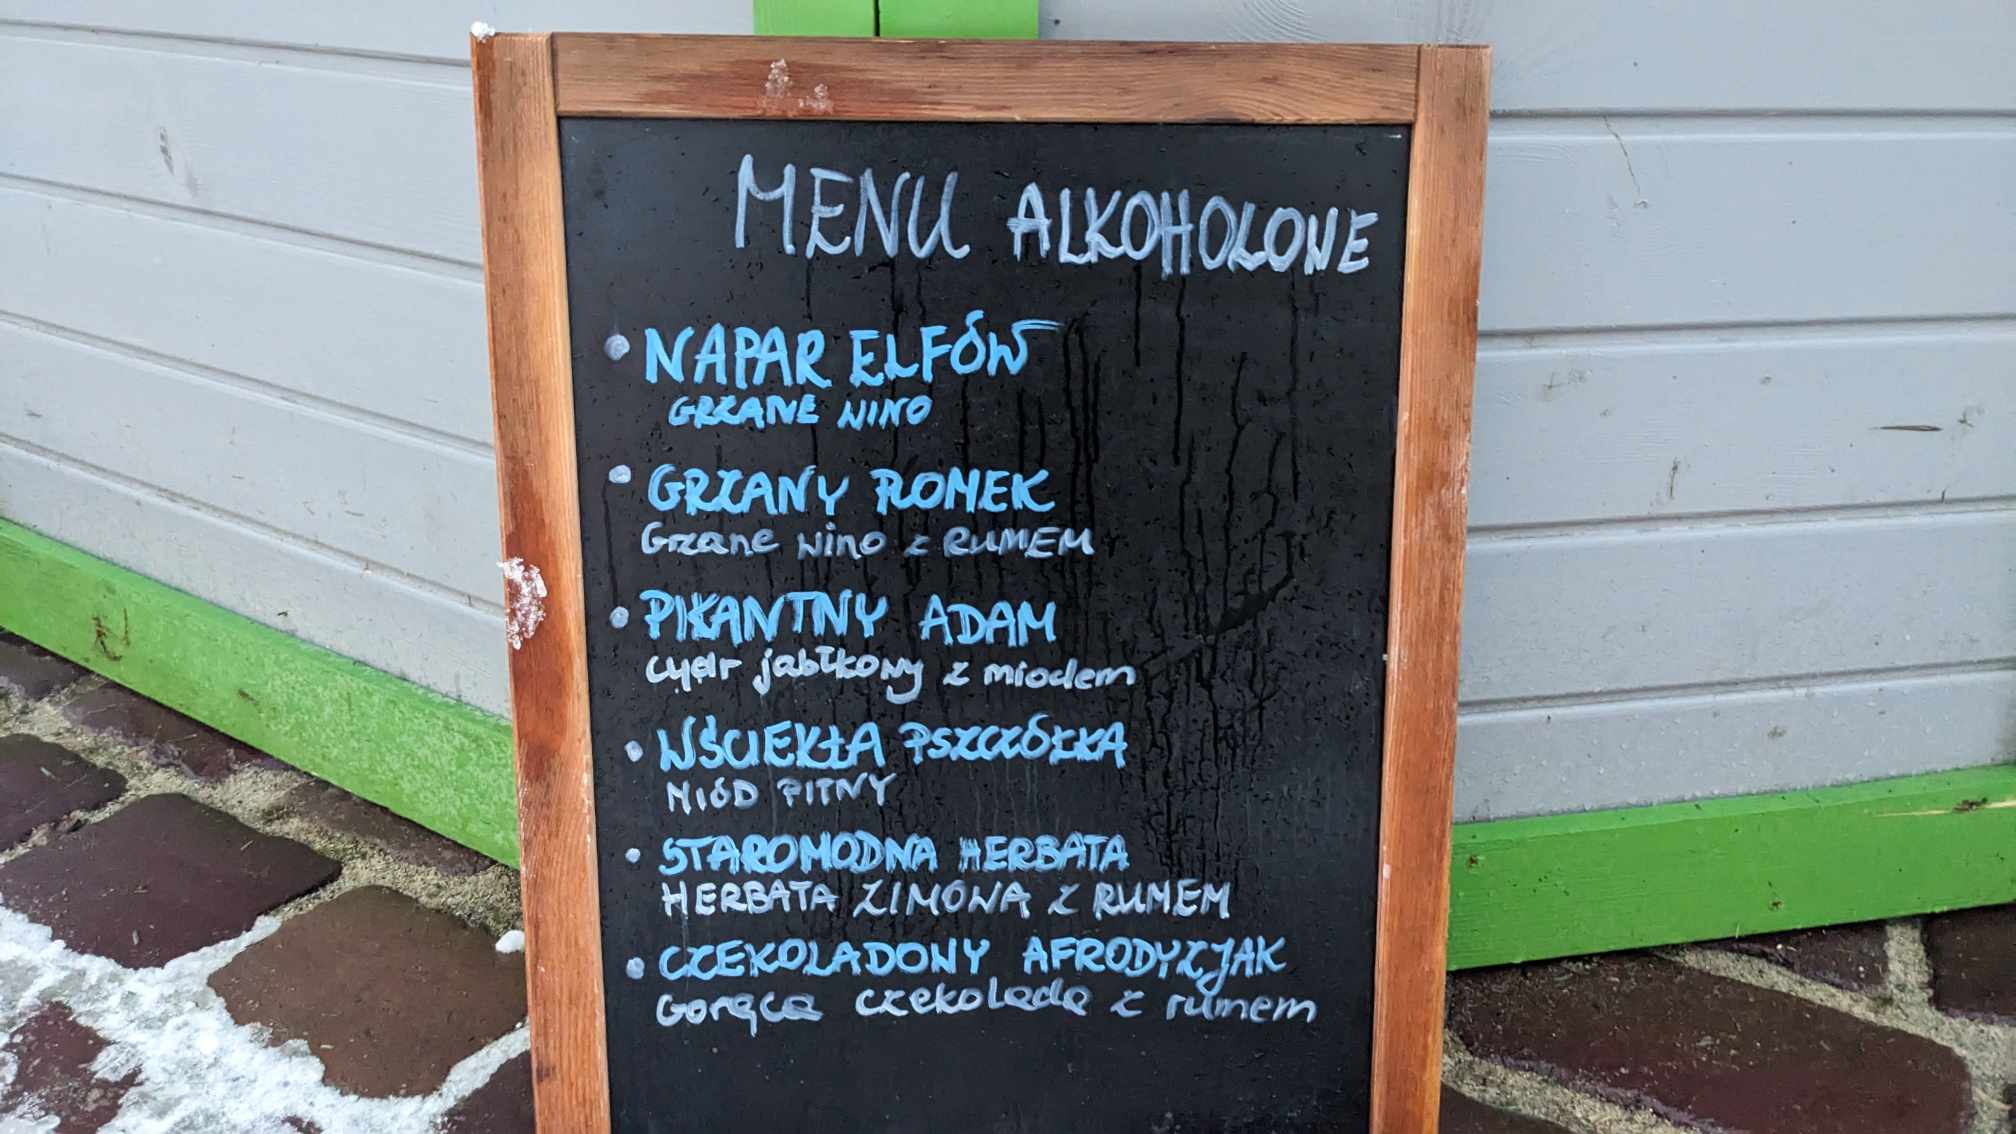 MENU ALKOHOLOWE
• NAPAR ELFÓW
GRZANE WINO
• GRZANY ROMEK
Grzane wino z RUMEM
• PIKANTNY ADAM
cydr jabłkowy z miodem
• WŚCIEKŁA PSZCZÓŁKA
MIÓD PITNY
• STAROMODNA HERBATA
HERBATA ZIMOWA Z RUMEM
• CZEKOLADONY AFRODYZJAK
Gorąca czekolada z rumem